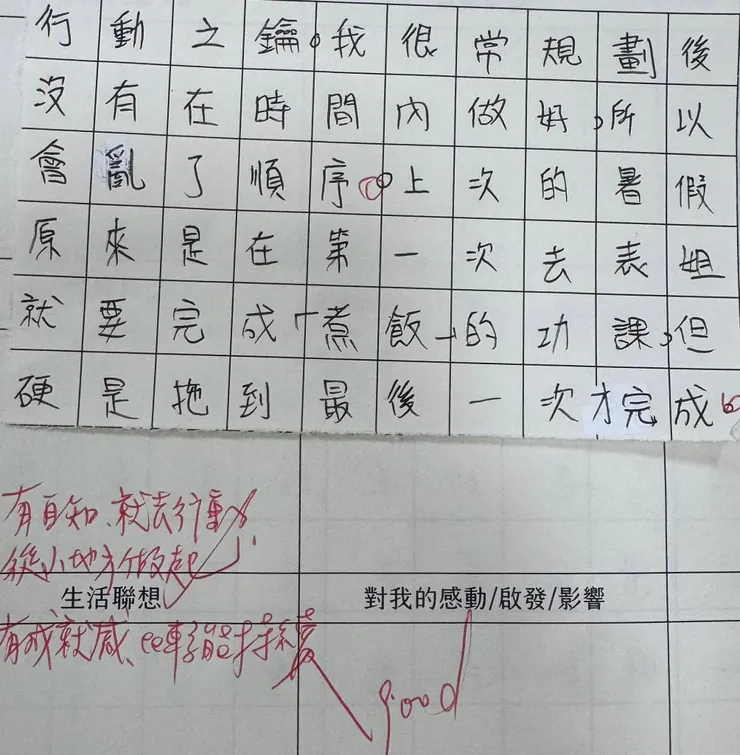 行動之鑰。我很常規劃後
沒有在時間內做好,所以
會亂了順序。上次的暑假
原來是在第一次去表姐
就要完成「煮飯」的功課,但
硬是拖到最後一次才完成。
有自知、就去行動
從小地方做起
生活聯想
對我的感動/啟發/影響
有成就感、
good